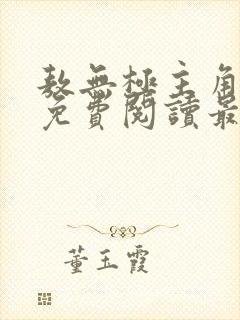 敖無極主角
免費閱讀最
董玉霞